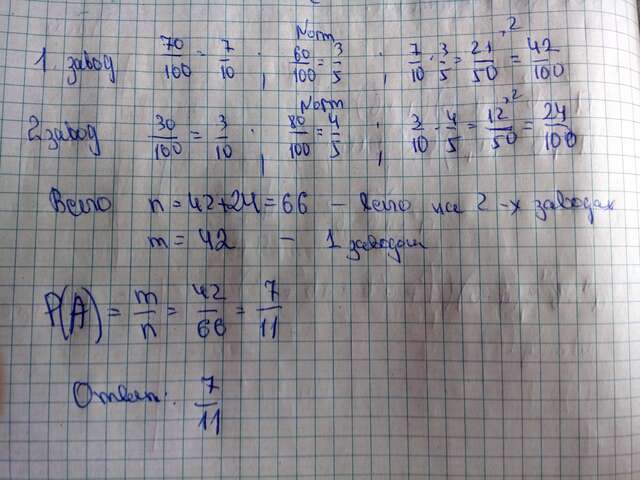 1. завод 70/100 = 7/10 , Norm 60/100 = 3/5 , 7/10 · 3/5 = 21/50 ·2 = 42/100
2 завод 30/100 = 3/10 , Norm 80/100 = 4/5 , 3/10 · 4/5 = 12/50 ·2 = 24/100
Всего n = 42+24 = 66 – всего на 2-х заводах
m = 42 – 1 заводом
P(A) = m/n = 42/66 = 7/11
Ответ: 7/11